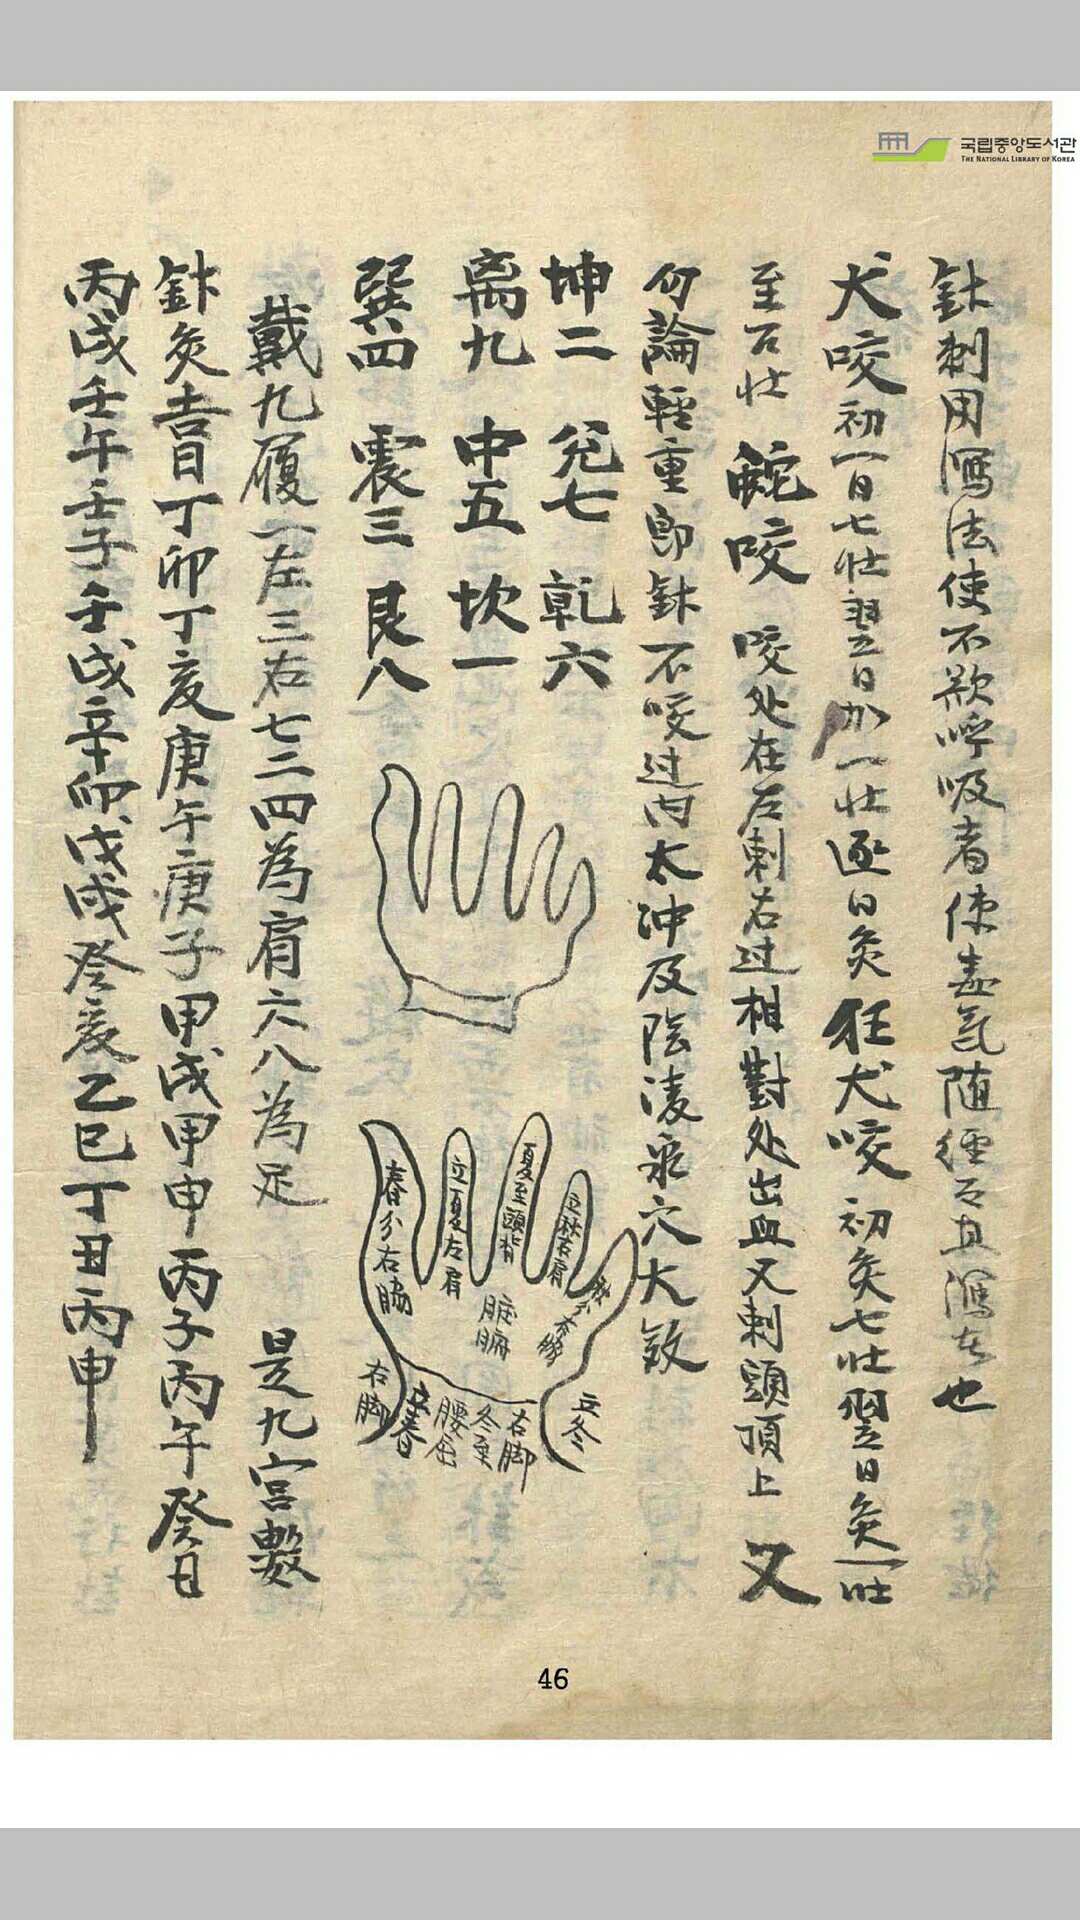 국립중앙도서관
THE NATIONAL LIBRARY OF KOREA
針刺用瀉法使不欬呼吸者使毒氣随經而且瀉去也
犬咬初一日七壮翌日加一壮逐日灸狂犬咬初灸七壮翌日灸一壮
至百壮 蛇咬 咬处在左刺右过相對处出血又刺頭頂上 又
勿論輕重即針不咬过内太冲及陰凌泉穴大效
坤二 兊七 乾六
离九 中五 坎一
巽四 震三 艮八
戴九履一左三右七二四為肩六八為足 是九宮數
針灸吉日丁卯丁亥庚午庚子甲戌甲申丙子丙午癸日
丙戌壬午壬子壬戌辛卯戊戌癸亥乙巳丁丑丙申
春分右脇
立夏左肩
夏至頭背
立秋右肩
臟腑
右脚
立春
腰尻
冬至
右脚
立冬
46